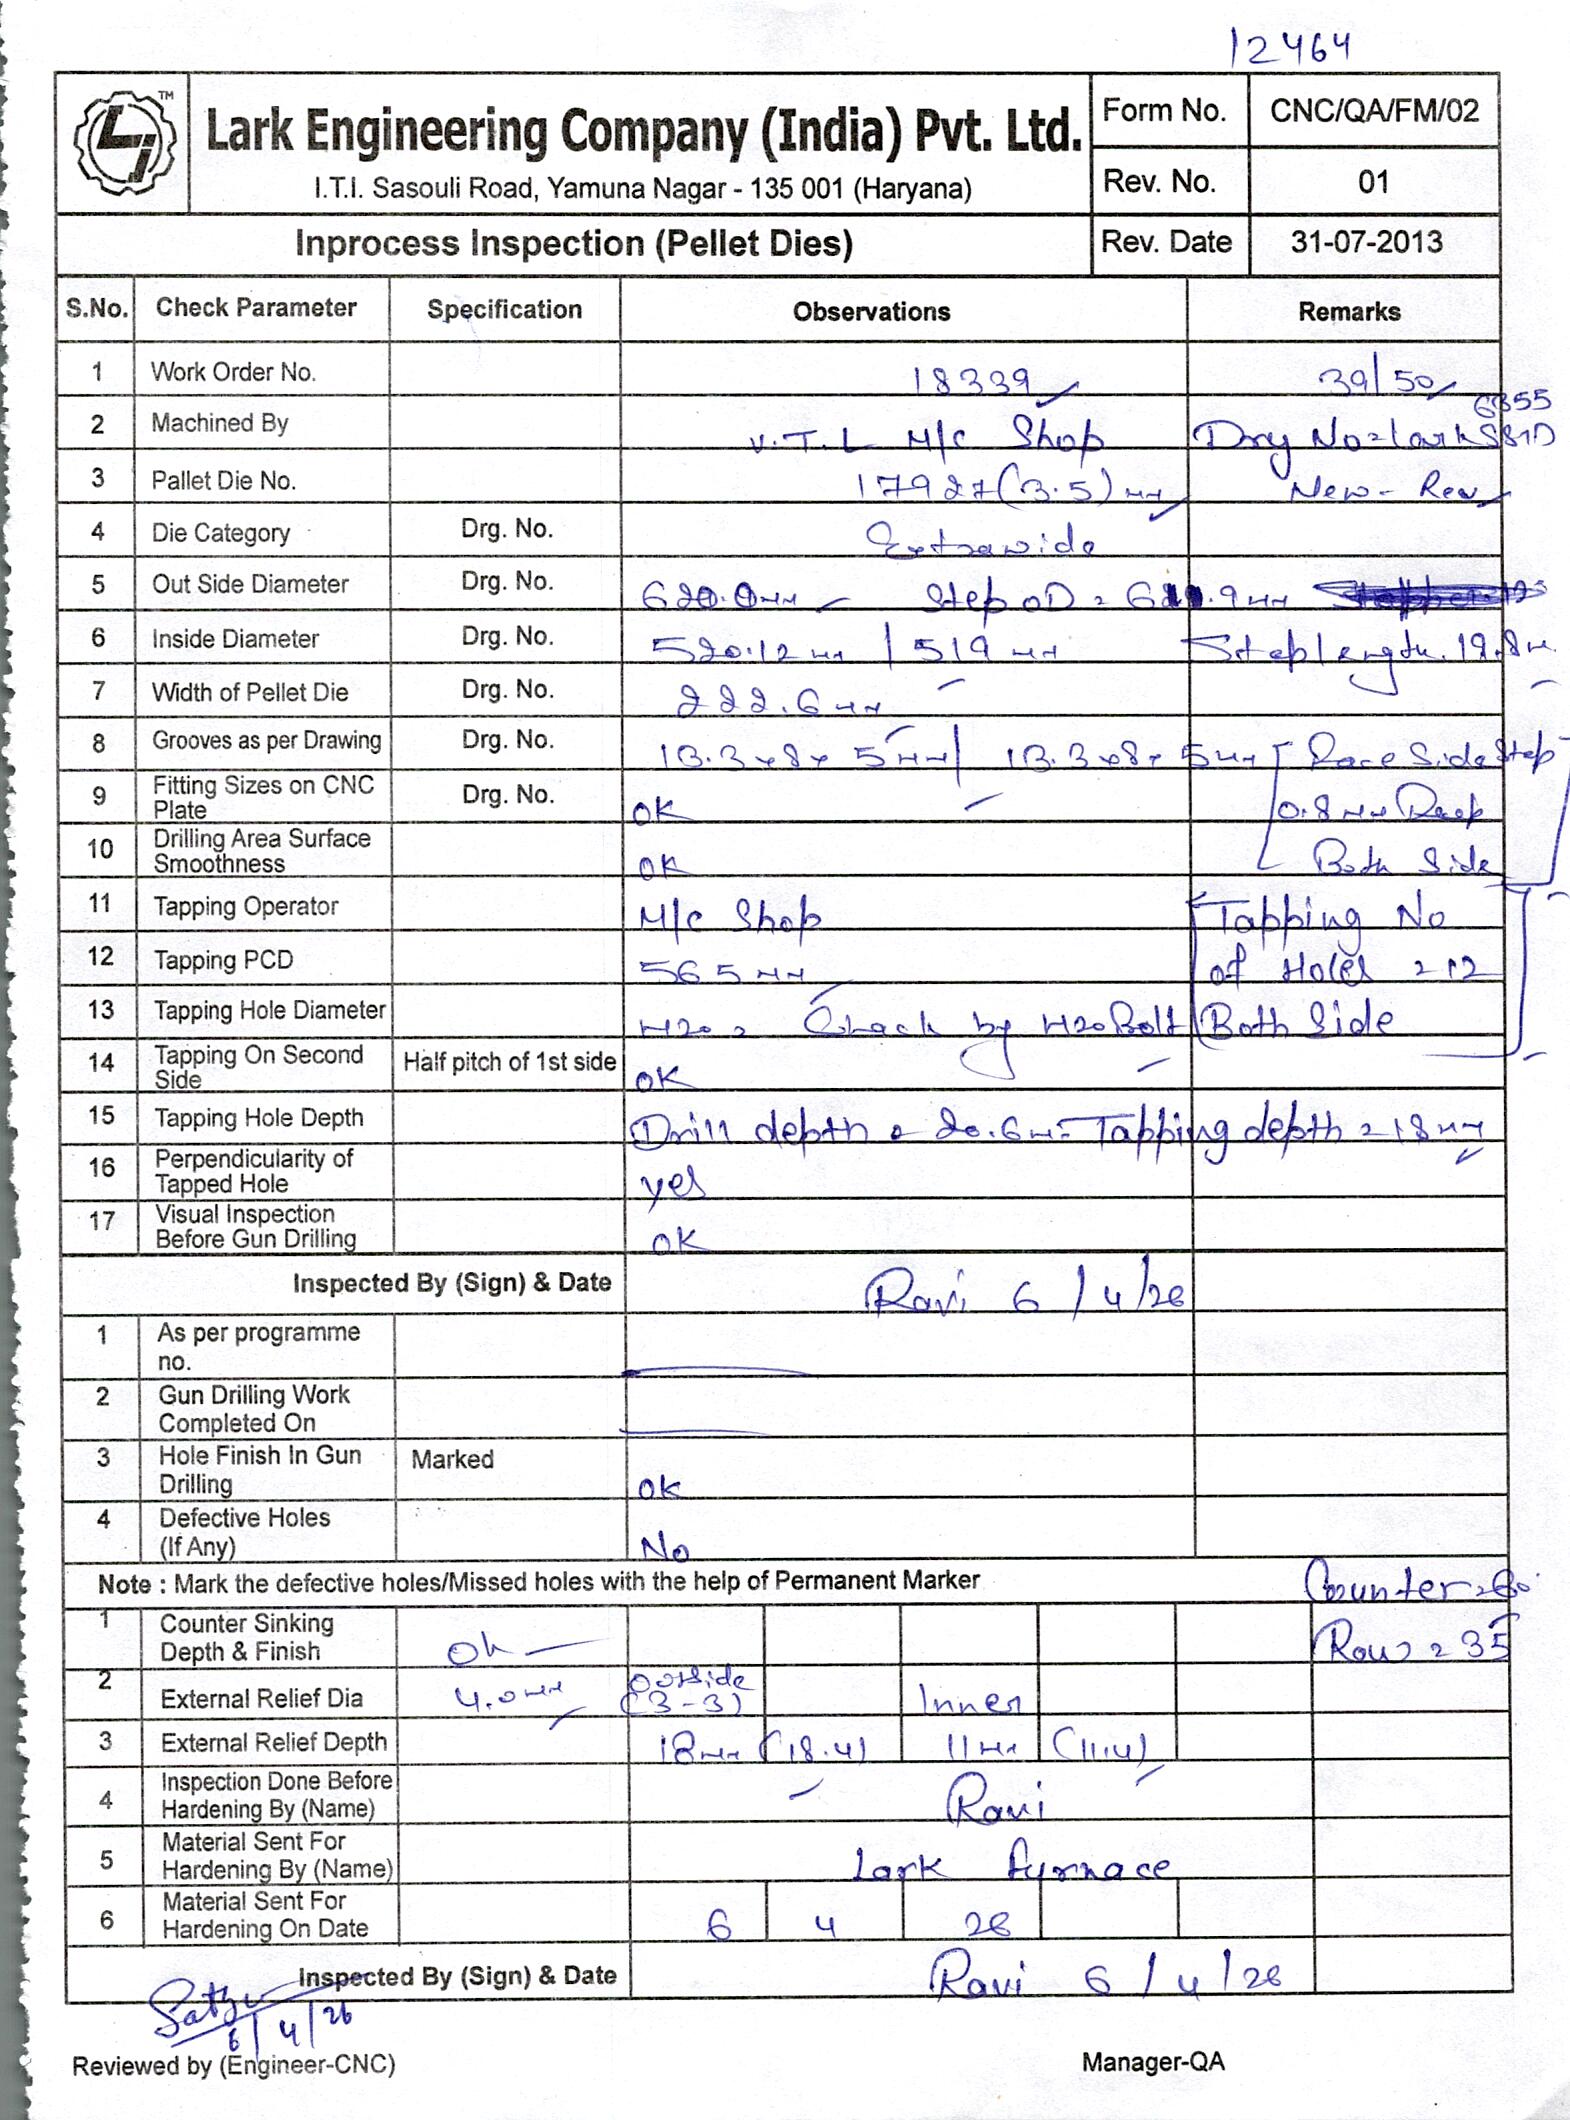 12464
TM
Lark Engineering Company (India) Pvt. Ltd.
I.T.I. Sasouli Road, Yamuna Nagar - 135 001 (Haryana)
Form No. CNC/QA/FM/02
Rev. No. 01
Inprocess Inspection (Pellet Dies) Rev. Date 31-07-2013
S.No. Check Parameter Specification Observations Remarks
1 Work Order No. 18339 39/50
6355
2 Machined By V.T.L M/c Shop Drg No=Lark
3 Pallet Die No. 17927(3.5)mm New- Rev
4 Die Category Drg. No. Extrawide
5 Out Side Diameter Drg. No. 620.0mm Step OD = mm
6 Inside Diameter Drg. No. 520.12 mm / 519 mm Step length. 19.8m
7 Width of Pellet Die Drg. No. 222.6 mm
8 Grooves as per Drawing Drg. No. 13.3x8x 5mm/ 13.3x8x 5mm Race Side Step
9 Fitting Sizes on CNC Plate Drg. No. OK 0.8mm Deep
10 Drilling Area Surface Smoothness OK Both Side
11 Tapping Operator M/c Shop Tapping No
12 Tapping PCD 565mm of Holes = 12
13 Tapping Hole Diameter M20 = Check by M20 Bolt Both Side
14 Tapping On Second Side Half pitch of 1st side OK
15 Tapping Hole Depth Drill depth = 20.6m= Tapping depth = 18mm
16 Perpendicularity of Tapped Hole yes
17 Visual Inspection Before Gun Drilling OK
Inspected By (Sign) & Date Ravi 6/4/26
1 As per programme no.
2 Gun Drilling Work Completed On
3 Hole Finish In Gun Drilling Marked OK
4 Defective Holes (If Any) No
Note : Mark the defective holes/Missed holes with the help of Permanent Marker Counter =
1 Counter Sinking Depth & Finish Ok Row = 35
2 External Relief Dia 4.0mm Outside (3-3) Inner
3 External Relief Depth 18mm (18.4) 11mm (11.4)
4 Inspection Done Before Hardening By (Name) Ravi
5 Material Sent For Hardening By (Name) Lark furnace
6 Material Sent For Hardening On Date 6 4 26
Inspected By (Sign) & Date Ravi 6/4/26
6/4/26
Reviewed by (Engineer-CNC) Manager-QA